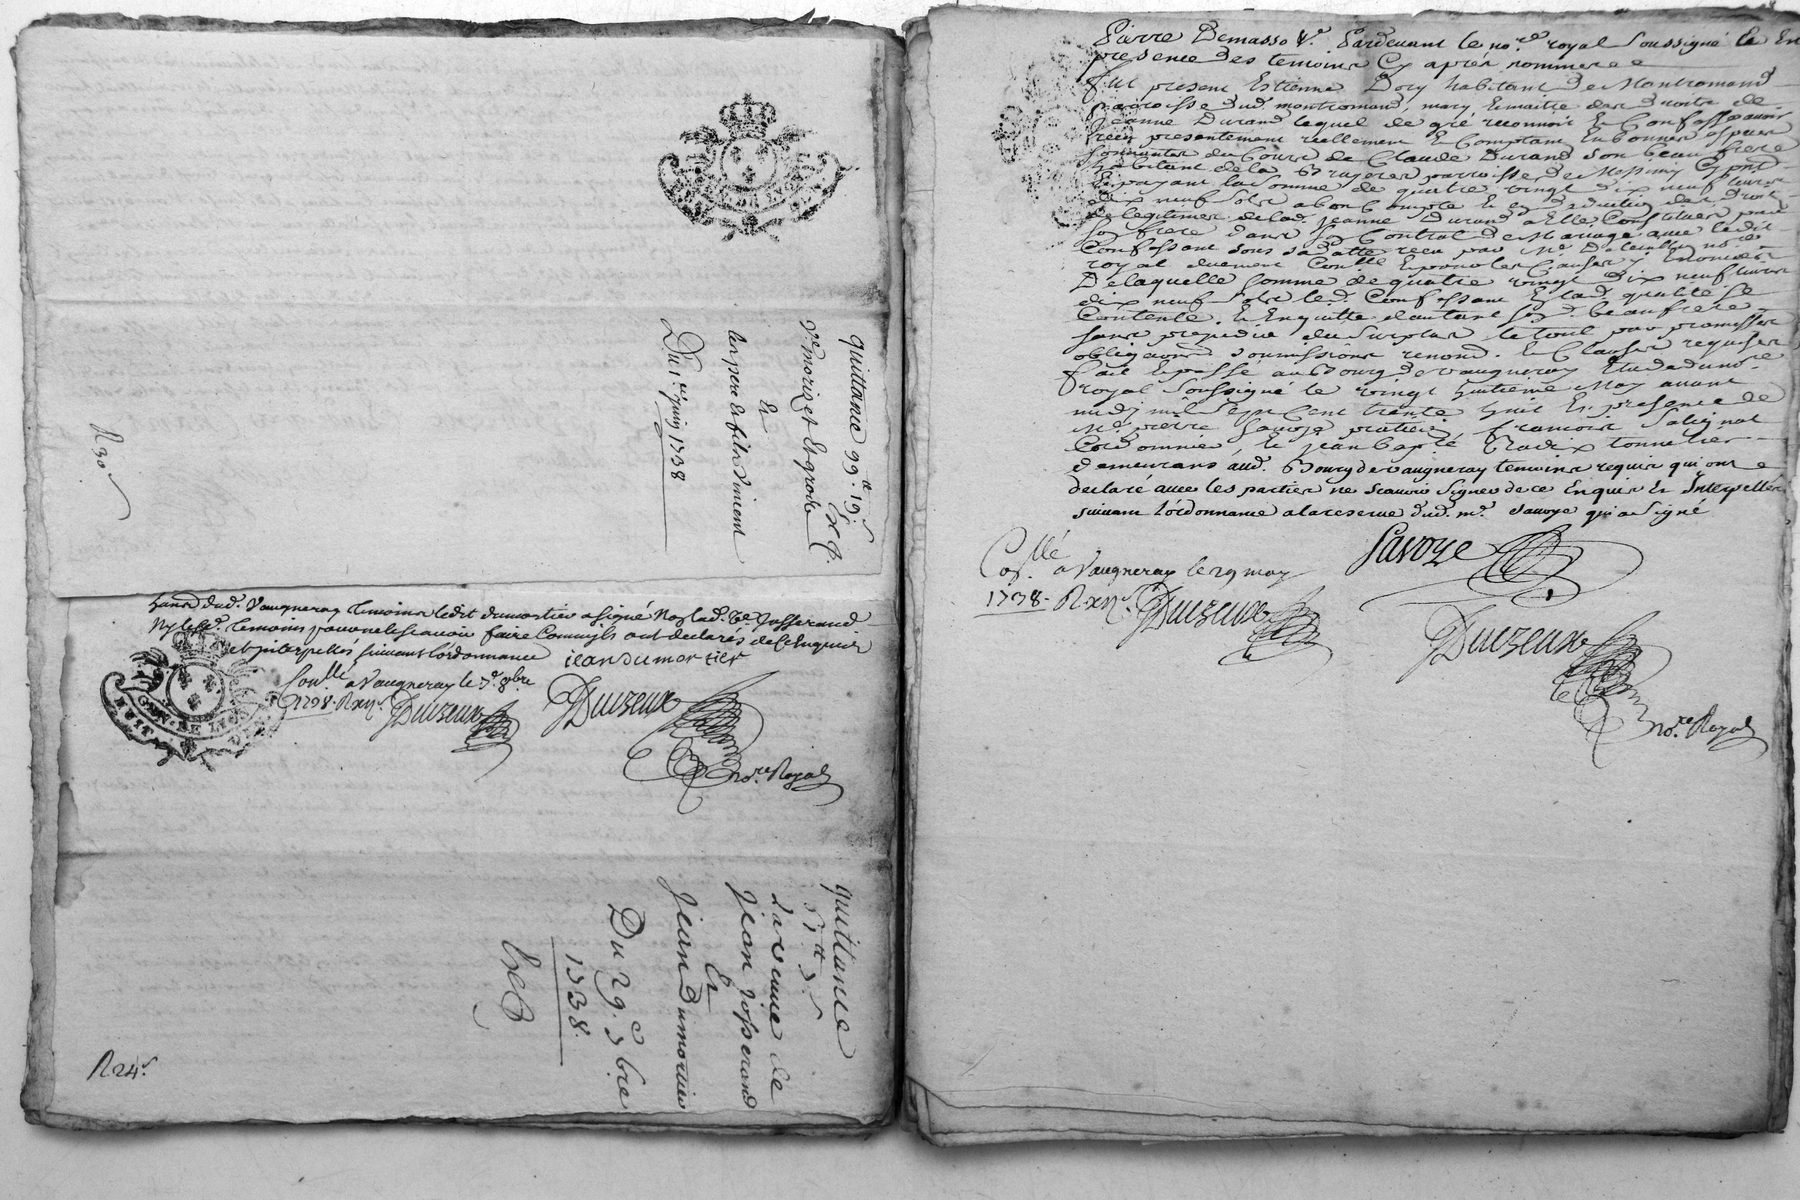 quittance 99.tt 19.s
v.e morizet Et groile
Et
les pere et fils Vincent
Du 1.er juin 1738
R 30 s
hans dud. Vaugneray temoins ledit dumortier a signé Non lad. v.e Josserand
Ny led. temoins pour ne le scavoir faire Comm'ils ont declarés de ce Enquis
et interpellés suivant l'ordonnance jean dumortier
Conllé a Vaugneray le
1738. R xii s. Duizeux
Duizeux
no.re Royal
GEN. DE LYON
HUIT DEN
quittance
51.tt
La veuve de
jean josserand
Et
jean Dumortier
Du 29.e
1738.
R 24 s
Pierre Demasso V.e Pardevant le no.re royal soussigné Et En
presence des temoins Cy aprés nommés
fut present Estienne Dory habitant de Montromand
parroisse dud. montromand, mary Et maitre des droits de
Jeanne Durand lequel de gré reconnoit Et Confesse avoir
receu presentement reellement Et Comptant En bonnes especes
sonnantes du Cours de Claude Durand son beau frere
habitant de la Bruyeres parroisse de Messimy
Et payant la somme de quatre vingt dix neuf livres
dix neuf sols a bon Compte Et en deduction des droits
de legitimes de lad. Jeanne Durand a Elle Constitués par
son frere dans son Contrat de Mariage avec ledit
Confessant sous sa datte receu par Me Delavallée no.re
royal duement Conllé Et pour les Causes y Enoncées
De laquelle somme de quatre vingt dix neuf livres
dix neuf sols led. Confessant Esd. qualité se
Contente Et En quitte d'autant sond. beau frere
sans prejudice du surplus le tout par promesses
obligaons soumissions renond. Et Clauses requises
fait Et passé au Bourg de Vaugneray Etude du no.re
royal soussigné le vingt huitieme May avant
midy mil sept Cent trente huit En presence de
Me pierre Savoye praticien, francois Salignat
Cordonnier, Et jean bap.te Radix tonnelier
demeurans aud. Bourg de Vaugneray temoins requis qui ont
declaré avec les parties ne scavoir signer de ce Enquis Et Interpellés
suivant l'ordonnance a la reserve dud. me. Savoye qui a signé
Savoye
Conllé a Vaugneray le 29 may
1738. R xii s. Duizeux
Duizeux
no.re Royal